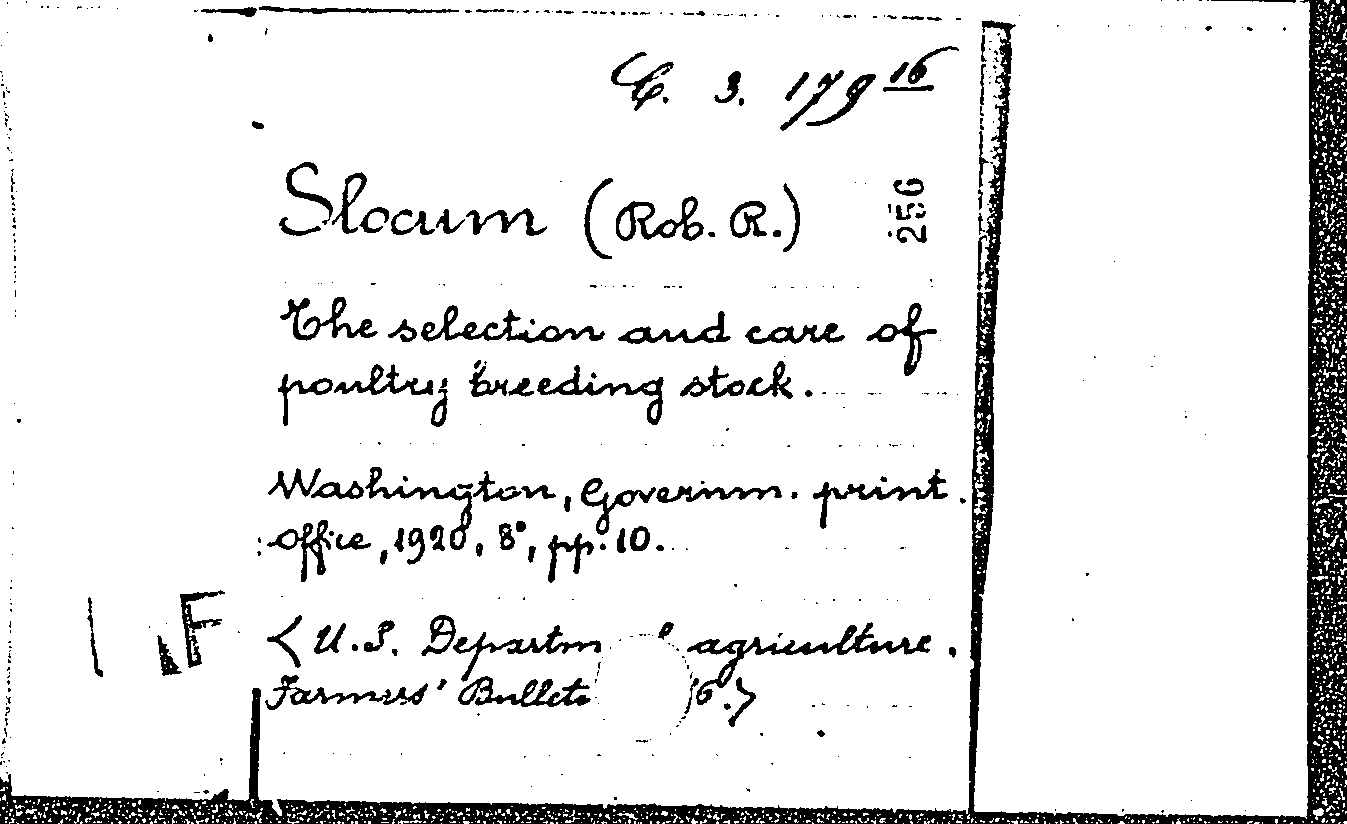 C. 3. 179 16
Slocum (Rob. R.)
256
The selection and care of
poultry breeding stock.
Washington, Governm. print.
office, 1920, 8°, pp. 10.
< U.S. Departm agriculture.
Farmers' Bullet 6.>